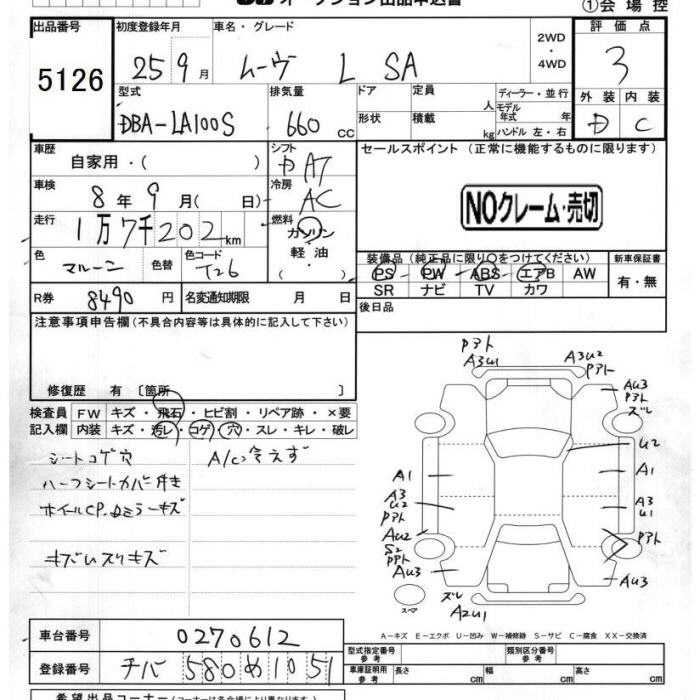 オークション出品申込書
①会場控
出品番号
5126
初度登録年月
25 9月
車名・グレード
ムーヴ L SA
2WD
・
4WD
評価点
3
型式
DBA-LA100S
排気量
660 cc
ドア
定員
人
形状
積載
kg
ディーラー・並行
モデル
年式 年
ハンドル 左・右
外装 内装
D C
車歴
自家用・( )
シフト
AT
セールスポイント(正常に機能するものに限ります)
車検
8年 9月( 日)
冷房
AC
NOクレーム・売切
走行
1万7千202km
燃料
ガソリン
軽油・
( )
色
マルーン
色替
色コード
T26
装備品(純正品に限り○をつけてください)
PS PW ABS エアB AW
SR ナビ TV カワ
新車保証書
有・無
R券
8490円
名変通知期限 月 日
後日品
注意事項申告欄(不具合内容等は具体的に記入して下さい)
修復歴 有〔箇所 〕
検査員
記入欄
FW キズ・飛石・ヒビ割・リペア跡・×要
内装 キズ・汚レ・コゲ・穴・スレ・キレ・破レ
シートコゲ穴
A/C冷えず
ハーフシートカバー付き
ホイールCP.ドミラーキズ
キズハスリキズ
Pアト
A3U1
A3U2
Pアト
AU3
Pアト
ズレ
U2
A1
A1
A3
U2
Pアト
A3
U1
AU2
S2
Pアト
AU3
Pアト
AU3
ズレ
A2U1
スペア
A-キズ E-エクボ U-凹み W-補修跡 S-サビ C-腐食 XX-交換済
車台番号
0270612
登録番号
チバ 580 め 1051
型式指定番号
参考
類別区分番号
参考
車庫証明用
参考
長さ cm 幅 cm 高さ cm
希望出品コーナー(コーナーは各会場により異なります)